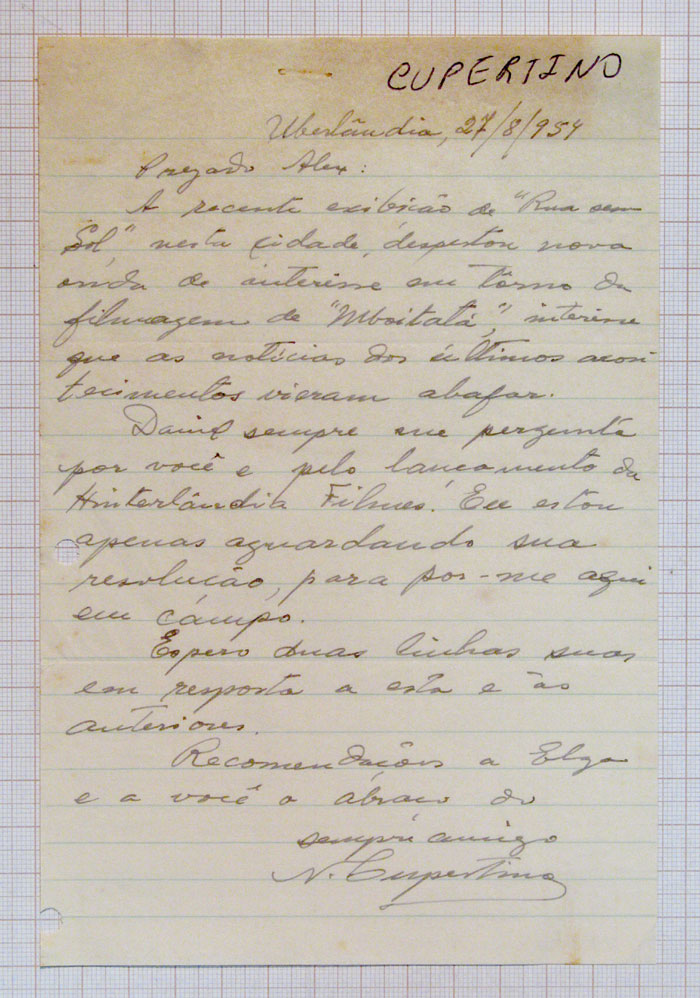 CUPERTINO
Uberlândia, 27/8/954
Prezado Alex:
A recente exibição de "Rua sem
Sol", nesta cidade, despertou nova
onda de interêsse em tôrno da
filmagem de "Mboitatá", interêsse
que as notícias dos últimos acon
tecimentos vieram abafar.
sempre me pergunta
por você e pelo lançamento da
Hinterlândia Filmes. Eu estou
apenas aguardando sua
resolução, para por-me aqui
em campo.
Espero duas linhas suas
em resposta a esta e às
anteriores.
Recomendações a Elza
e a você o abraço do
sempre amigo
N. Cupertino